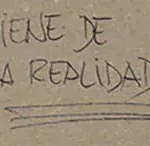 IENE DE
A REALIDAD